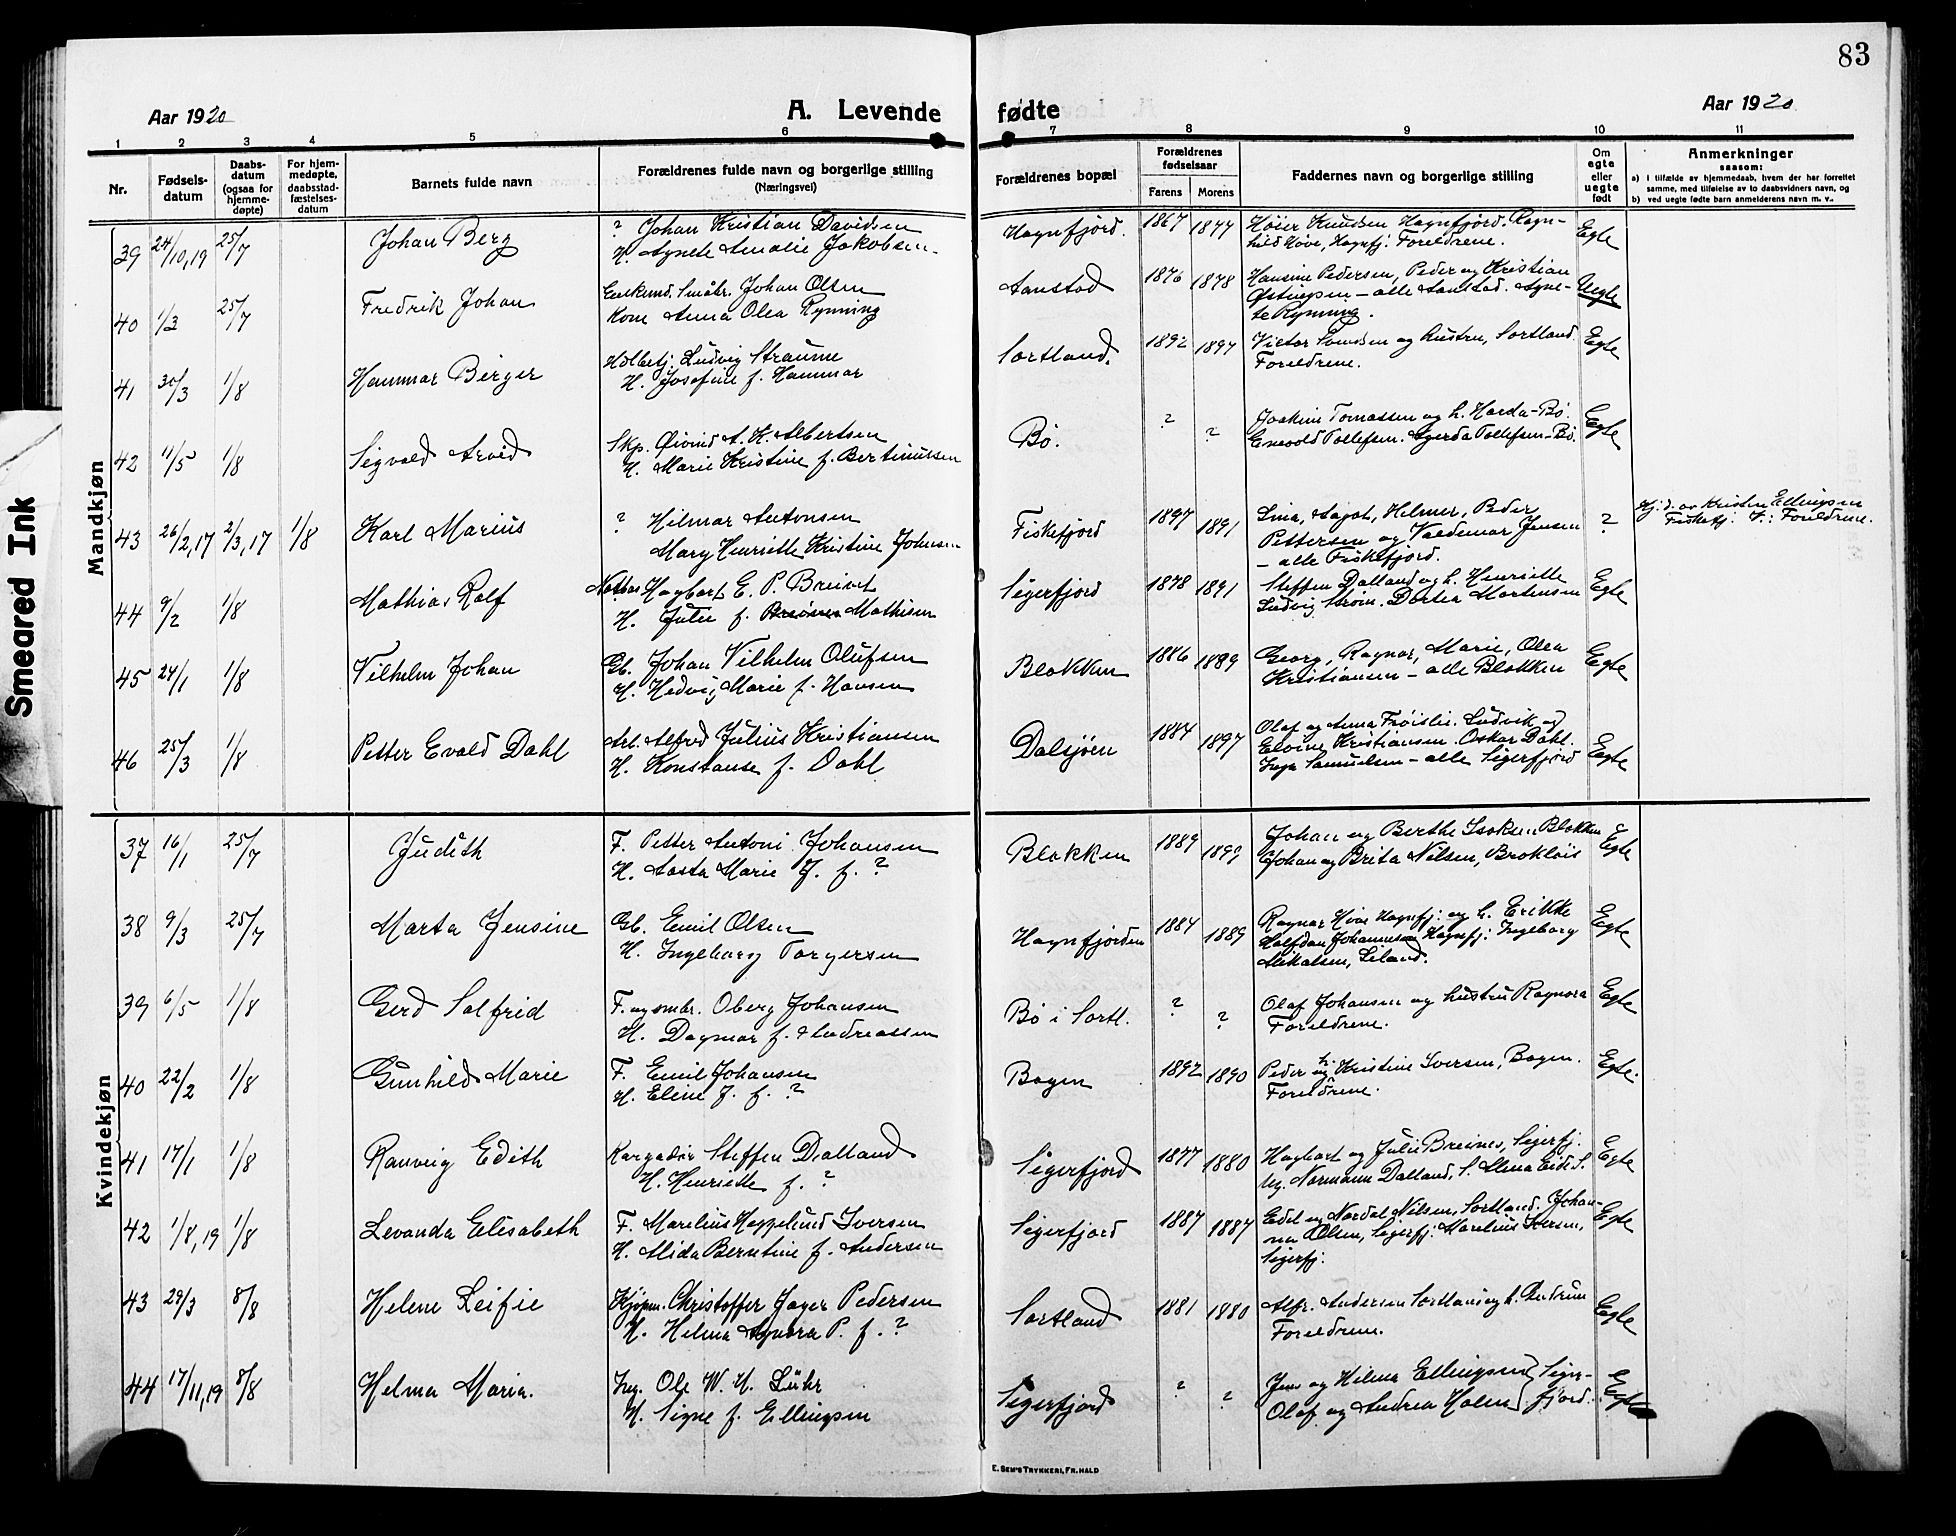 83
Aar 1920
A. Levende fødte
Aar 1920
1 2 3 4 5 6 7 8 9 10 11
Nr.
Fødsels-
datum
Daabs-
datum
(ogsaa for
hjemme-
døpte)
For hjem-
medøpte,
daabsstad-
fæstelses-
datum
Barnets fulde navn
Forældrenes fulde navn og borgerlige stilling
(Næringsvei)
Forældrenes bopæl
Forældrenes
fødselsaar
Farens Morens
Faddernes navn og borgerlige stilling
Om
egte
eller
uegte
født
Anmerkninger
saasom:
a) i tilfælde av hjemmedaab, hvem der har forrettet
samme, med tilføielse av to daabsvidners navn, og
b) ved uegte fødte barn anmelderens navn m. v..
Mandkjøn
39 24/10,19 25/7 Johan Berg
? Johan Kristian Davidsen
H. Agnete Amalie Jakobsen
Hognfjord. 1867 1877
Høier Knudsen Hognfjord. Ragn-
hild Hove, Hognfj: Foreldrene.
Egte
40 1/3 25/7 Fredrik Johan
Enkemd. Småbr. Johan Olsen
Kone Anna Olea Rynning
Aanstad 1876 1878
Hansine Pedersen, Peder og Kristian
– alle Aanstad. Agne-
te Rynning.
Uegte
41 30/3 1/8 Hammar Berger
Ludvig Straume
H. Josefine f. Hammar
Sortland. 1892 1897
Victor Svendsen og hustru, Sortland.
Foreldrene.
Egte
42 11/5 1/8 Sigvald Arvid
Skp. Øivind A. K. Albertsen
H. Marie Kristine f. Bertinussen
Bø. ? ?
Joakim Tomassen og h. Harda-Bø.
Enevold Tollefsen. Gerda Tollefsen-Bø.
Egte
43 26/2,17 2/3,17 1/8 Karl Marius
? Hilmar Antonsen
Mary Henriette Kristine Johnsen
Fiskefjord 1897 1891
Lina, Aagot, Helmer, Peder
Pettersen og Valdemar Jensen
– alle Fiskefjord.
?
Hj. d. av Kristen Ellingsen
Fiskefj: V.: Foreldrene.
44 9/2 1/8 Mathias Rolf
Hagbart E. P. Breivet
H. Julie f. Mathisen
Sigerfjord 1878 1891
Steffen Dalland og h. Henriette
Ludvig Strøm. Dortea Mortensen
Egte
45 24/1 1/8 Vilhelm Johan
Gb. Johan Vilhelm Olufsen
H. Hedvig Marie f. Hansen
Blokken 1886 1889
Georg, Ragnar, Marie, Olea
Kristiansen – alle Blokken
Egte
46 25/3 1/8 Petter Evald Dahl
Arb. Alfred Julius Kristiansen
H. Konstanse f. Dahl
Dalsjøen 1884 1897
Olaf og Anna Frøislie. Ludvik og
Elvine Kristiansen. Oskar Dahl.
Inga Samuelsen – alle Sigerfjord
Egte
Kvindekjøn
37 16/1 25/7 Judith
F. Petter Antoni Johansen
H. Aasta Marie J. f. ?
Blokken 1889 1899
Johan og Berthe Isaksen Blokken
Johan og Brita Nilsen, Brokløis
Egte
38 9/3 25/7 Marta Jensine
Gb. Emil Olsen
H. Ingeborg Torgersen
Hognfjorden 1884 1889
Ragnar Hove Hognfj: og h. Erikke
Halfdan Johannesen Hognfj: Ingeborg
Mikalsen, Liland.
Egte
39 6/5 1/8 Gerd Solfrid
F. og smbr. Oberg Johansen
H. Dagmar f. Andreassen
Bø i Sortl. ? ?
Olaf Johansen og hustru Ragnora
Foreldrene.
Egte
40 22/2 1/8 Gunhild Marie
F. Emil Johansen
H. Eline J. f. ?
Bogen 1892 1890
Peder og h. Kristine Iversen, Bogen.
Foreldrene.
Egte.
41 17/1 1/8 Ranveig Edith
Steffen Dalland
H. Henriette f. ?
Sigerfjord 1877 1880
Hagbart og Julie Breines, Sigerfj.
Ug. Normann Dalland, S. Alma Eide S.
Egte
42 1/8,19 1/8 Levanda Elisabeth
F. Marelius Heggelund Iversen
H. Alida Berntine f. Andersen
Sigerfjord 1887 1887
Edel og Nordal Nilsen, Sortland. Johan-
na Olsen, Sigerfj: Marelius Iversen,
Sigerfj:
Egte
43 29/3 8/8 Helene Leifie
Kjøpm. Christoffer Jager Pedersen
H. Helma Agnora P. f. ?
Sortland 1881 1880
Alfr. Andersen Sortland og h. Andrine
Foreldrene.
Egte
44 17/11,19 8/8 Helma Maria.
Ing. Ole W. H. Lühr
H. Signe f. Ellingsen
Sigerfjord ? ?
Jens og Hilma Ellingsen, Siger-
Olaf og Andrea Holm fjord.
Egte
E. SEM'S TRYKKERI, FR.HALD
Smeared Ink